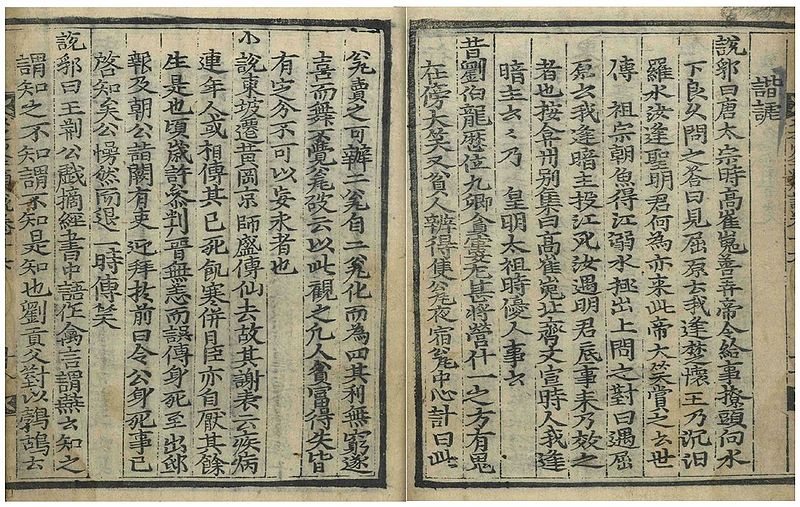 諧謔
說郛曰唐太宗時高崔嵬善弄帝令給事捺頭向水
下良久問之答曰見屈原云我逢楚懷王乃沉汨
羅水汝逢聖明君何爲亦來此帝大笑賞之云世
傳 祖宗朝魚得江弱水趣出上問之對曰遇屈
原云我逢暗主投江死汝遇明君底事来乃效之
者也按弇州別集曰高崔嵬北齊文宣時人我逢
暗主云云乃 皇明太祖時優人事云
昔劉伯龍歷位九卿貧寠尤甚將營什一之方有鬼
在傍大笑又貧人辦得隻瓮夜宿瓮中心計曰此
瓮賣之可辦二瓮自二瓮化而為四其利無窮遂
喜而舞不覺瓮破云以此觀之凡人貧富得失皆
有定分不可以妄求者也
小說東坡遷黃岡京師盛傳仙去故其謝表云疾病
連年人或相傳其已死飢寒併日臣亦自厭其餘
生是也頃歲許叅判晉無恙而誤傳身死至出邸
報及朝公詣闕有吏迎拜於前曰令公身死事已
啓知矣公愕然而退一時傳笑
說郛曰王荊公戲摘經書中語作禽言謂燕云知之
謂知之不知謂不知是知也劉貢父對以鵓鴣云